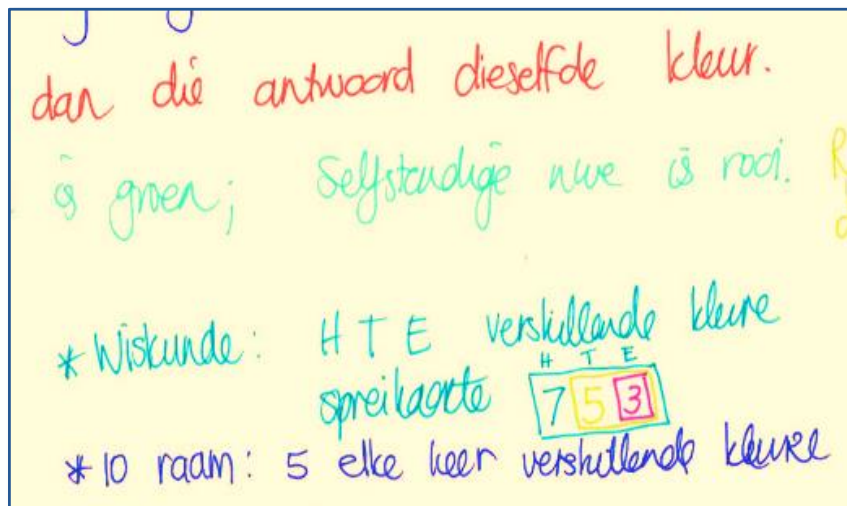 dan die antwoord dieselfde kleur.
is groen; Selfstandige nwe is rooi.
* Wiskunde: H T E verskillende kleure
H T E
spreikaarte 7 5 3
* 10 raam: 5 elke keer verskillende kleure